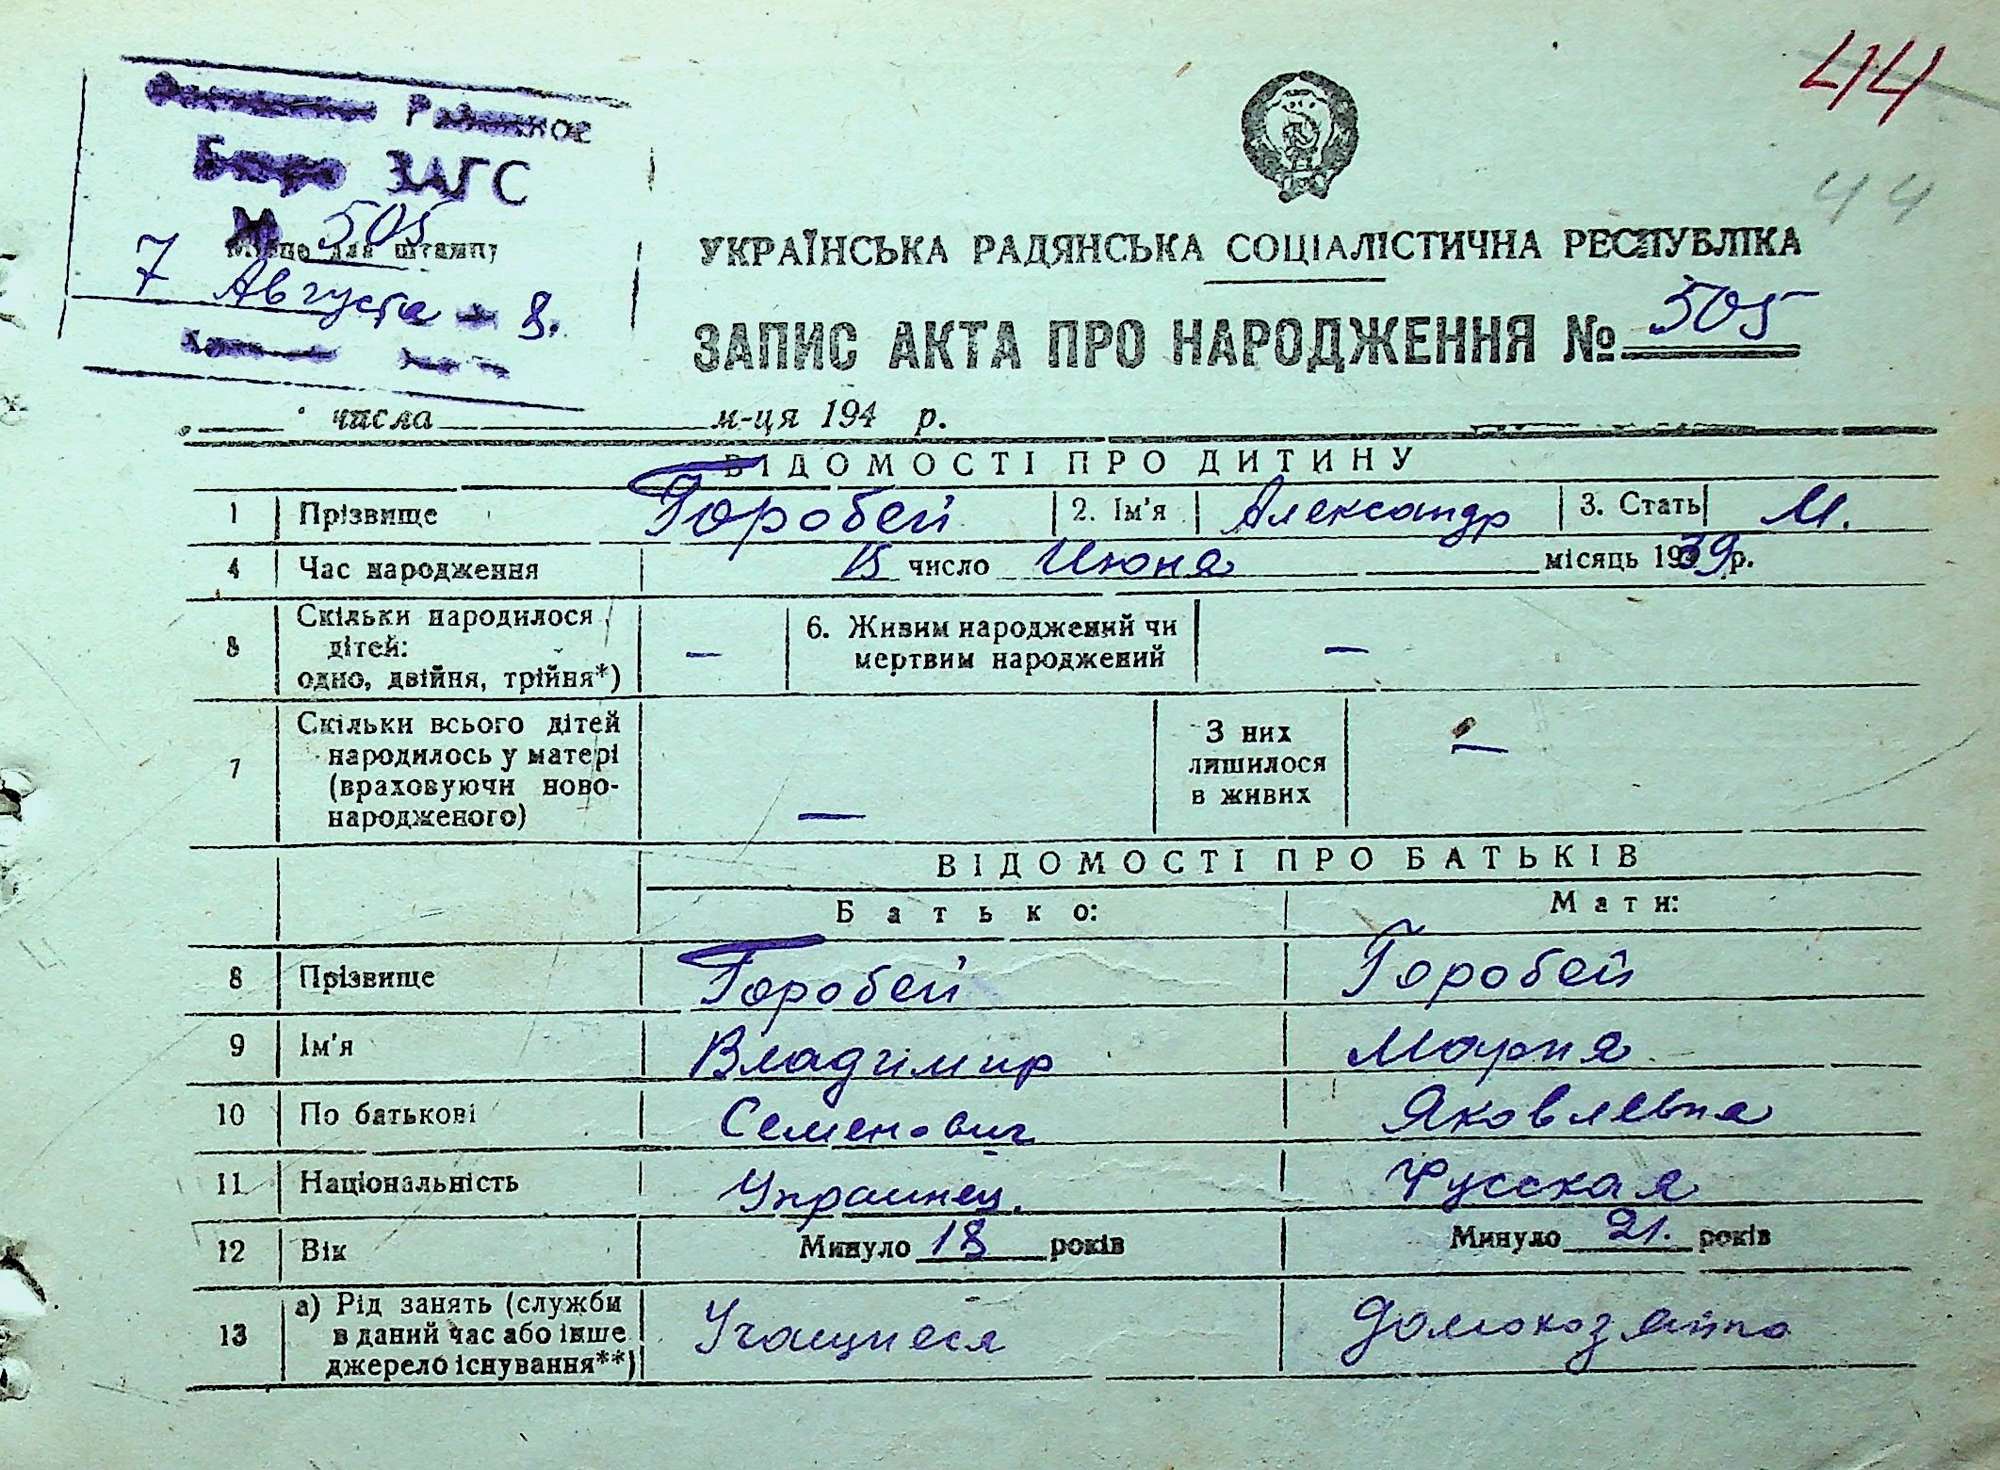 44
44
ЗАГС
№ 505
Місце для штампу
7 Августа 8.
УКРАЇНСЬКА РАДЯНСЬКА СОЦІАЛІСТИЧНА РЕСПУБЛІКА
ЗАПИС АКТА ПРО НАРОДЖЕННЯ № 505
числа м-ця 194 р.
ВІДОМОСТІ ПРО ДИТИНУ
1 Прізвище Горобей 2. Ім'я Александр 3. Стать М.
4 Час народження 15 число Июня місяць 1939 р.
5 Скільки народилося дітей: одно, двійня, трійня*) — 6. Живим народжений чи мертвим народжений —
7 Скільки всього дітей народилось у матері (враховуючи новонародженого) — З них лишилося в живих —
ВІДОМОСТІ ПРО БАТЬКІВ
Батько: Мати:
8 Прізвище Горобей Горобей
9 Ім'я Владимир Мария
10 По батькові Семенович Яковлевна
11 Національність Украинец. Русская
12 Вік Минуло 18 років Минуло 21. років
13 а) Рід занять (служби в даний час або інше джерело існування**) Учащиеся Домохозяйка